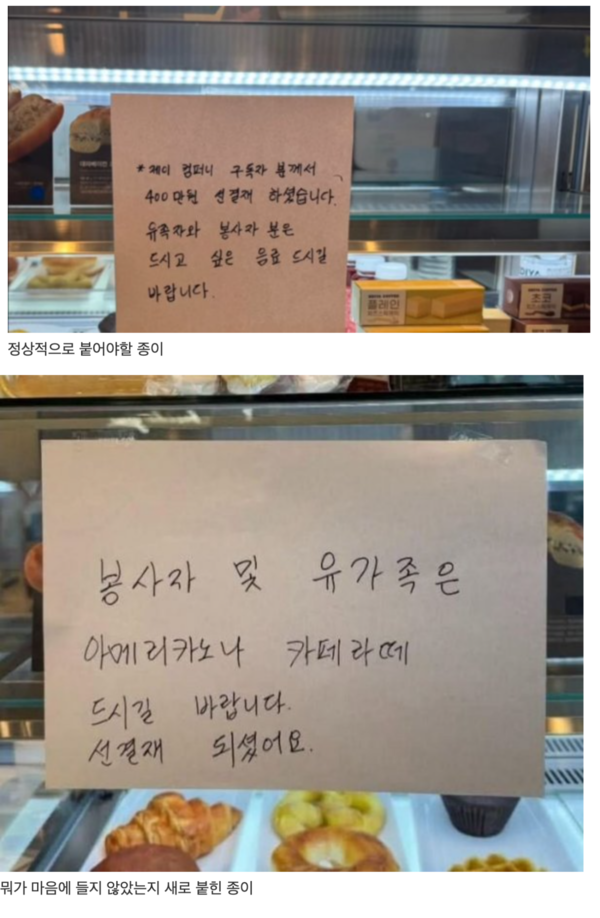 * 제디 컴퍼니 구독자 분께서
400만원 선결재 하셨습니다.
유족자와 봉사자 분은
드시고 싶은 음료 드시길
바랍니다.
플레인
초코
정상적으로 붙어야할 종이
봉사자 및 유가족은
아메리카노나 카페라떼
드시길 바랍니다.
선결재 되셨어요.
뭐가 마음에 들지 않았는지 새로 붙힌 종이